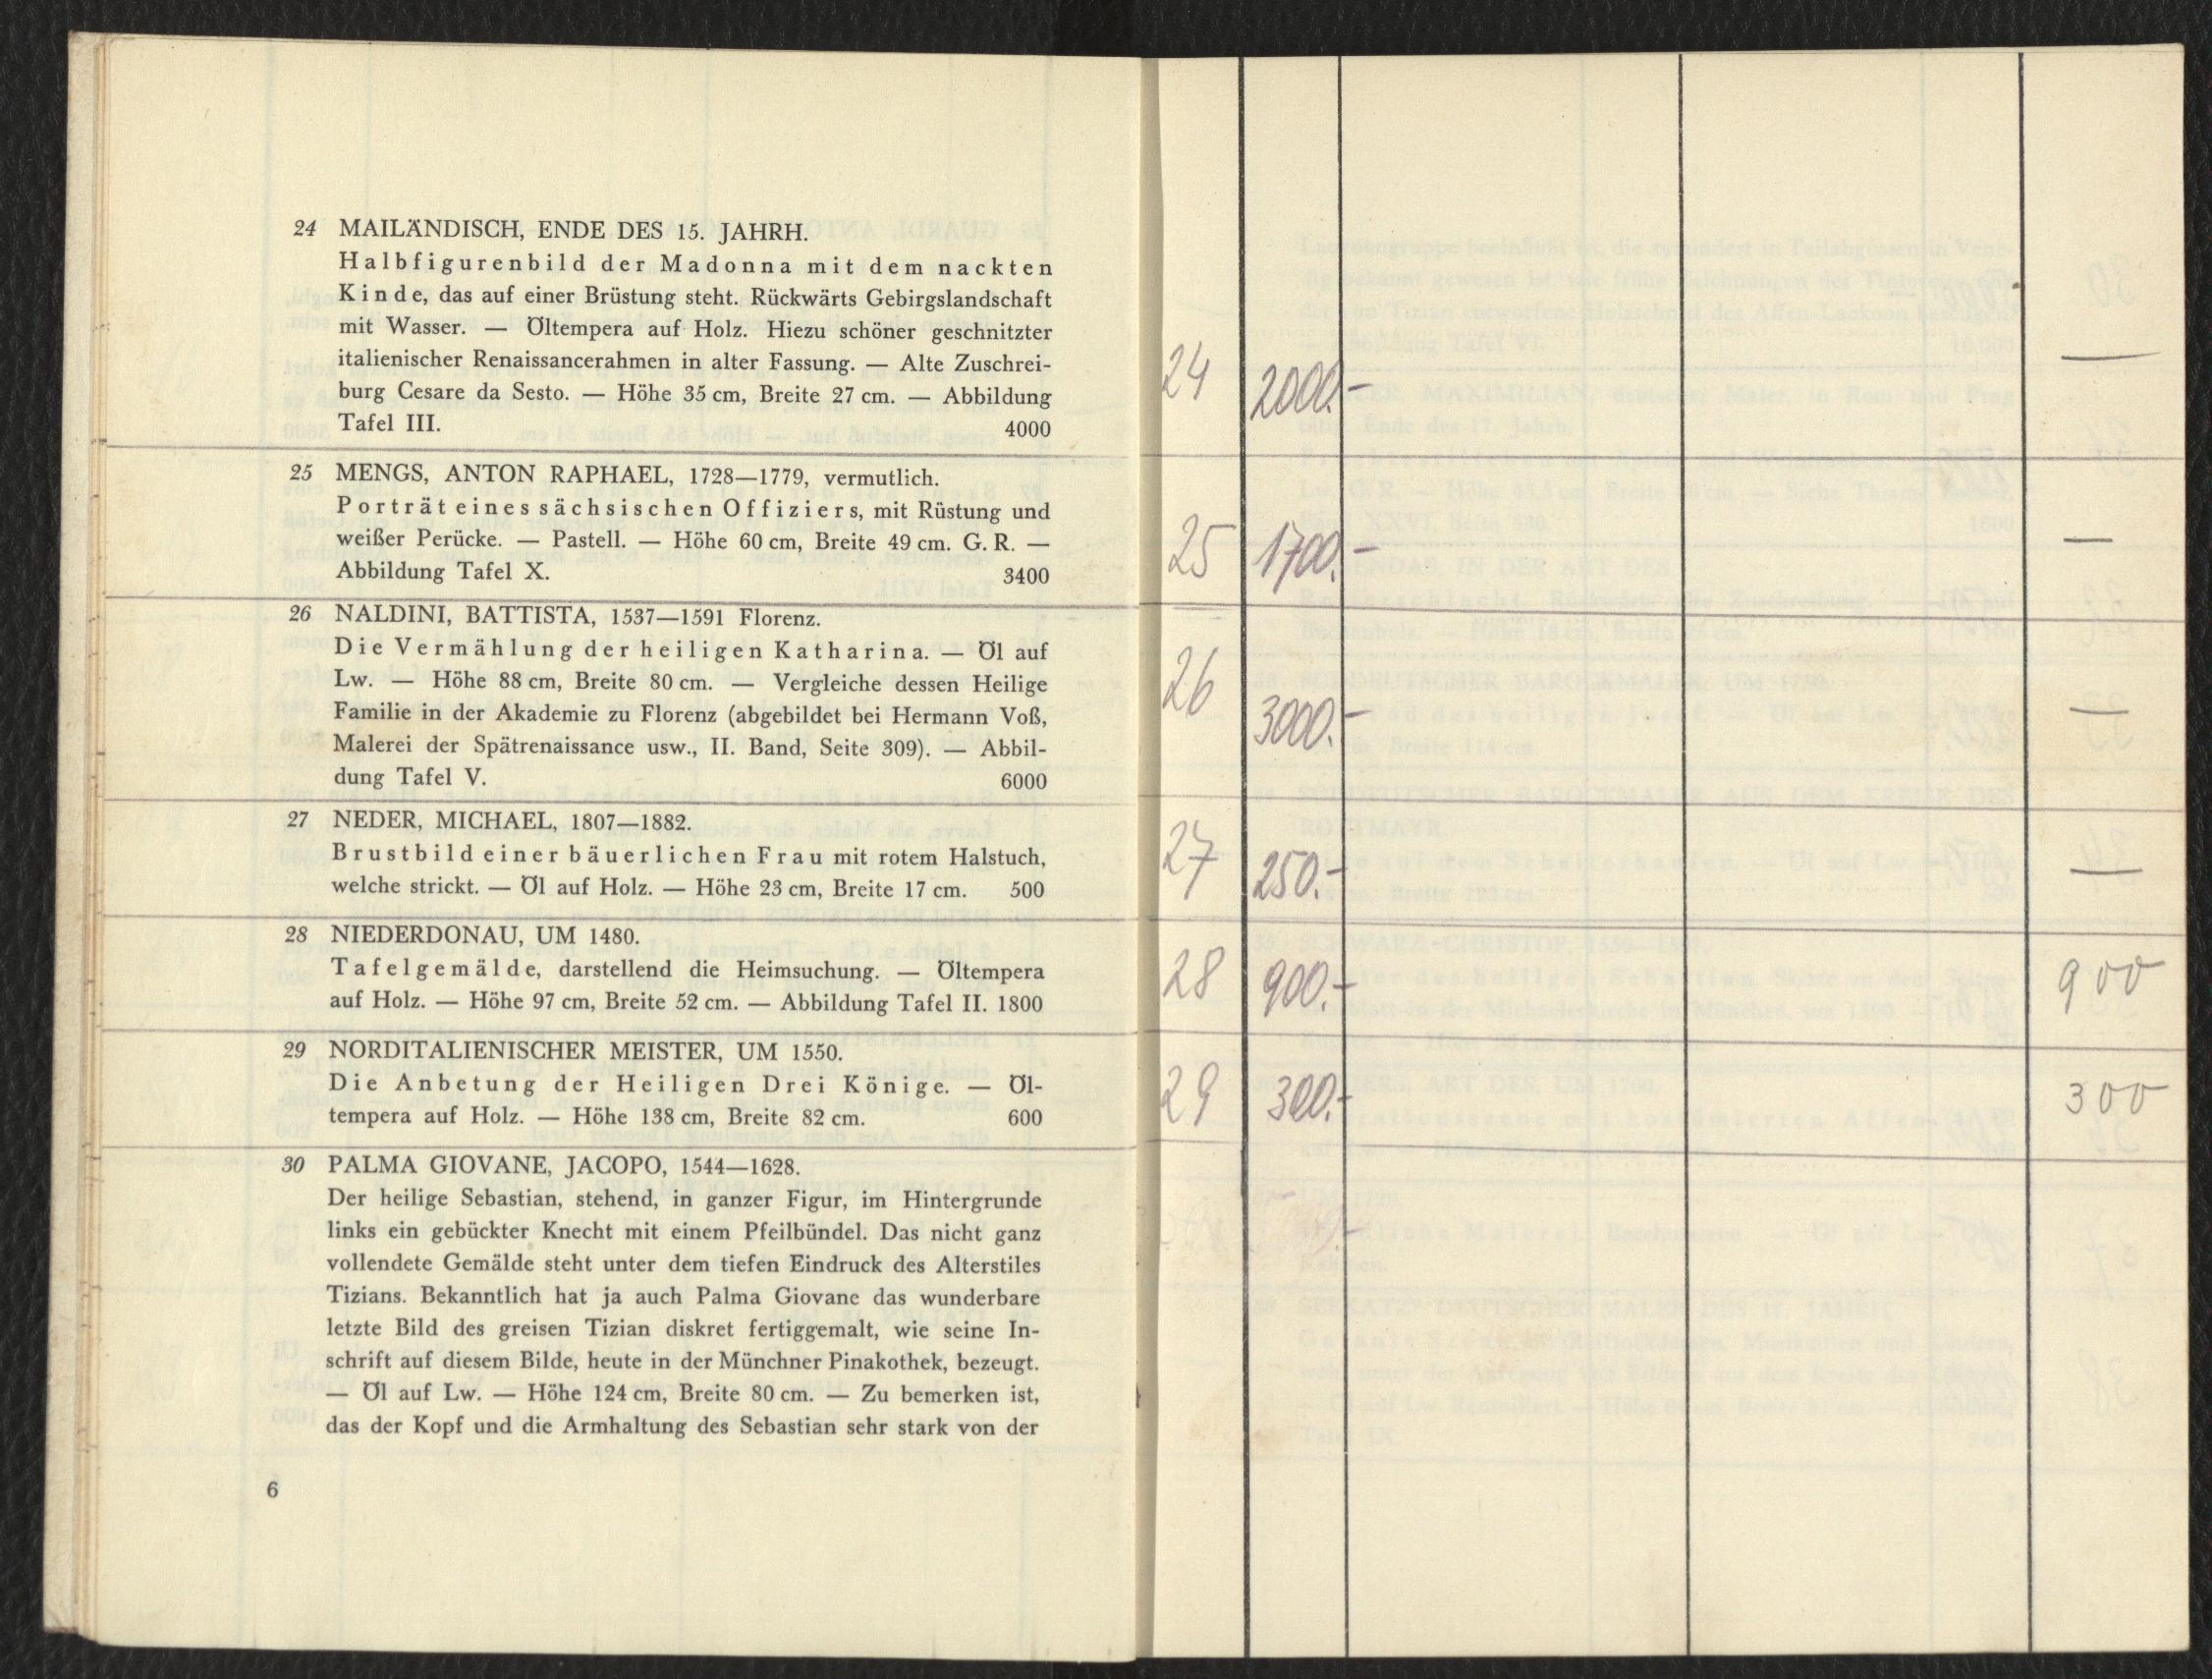 24 MAILÄNDISCH, ENDE DES 15. JAHRH.
Halbfigurenbild der Madonna mit dem nackten
Kinde, das auf einer Brüstung steht. Rückwärts Gebirgslandschaft
mit Wasser. — Öltempera auf Holz. Hiezu schöner geschnitzter
italienischer Renaissancerahmen in alter Fassung. — Alte Zuschrei-
burg Cesare da Sesto. — Höhe 35 cm, Breite 27 cm. — Abbildung
Tafel III. 4000
25 MENGS, ANTON RAPHAEL, 1728—1779, vermutlich.
Porträt eines sächsischen Offiziers, mit Rüstung und
weißer Perücke. — Pastell. — Höhe 60 cm, Breite 49 cm. G. R. —
Abbildung Tafel X. 3400
26 NALDINI, BATTISTA, 1537—1591 Florenz.
Die Vermählung der heiligen Katharina. — Öl auf
Lw. — Höhe 88 cm, Breite 80 cm. — Vergleiche dessen Heilige
Familie in der Akademie zu Florenz (abgebildet bei Hermann Voß,
Malerei der Spätrenaissance usw., II. Band, Seite 309). — Abbil-
dung Tafel V. 6000
27 NEDER, MICHAEL, 1807—1882.
Brustbild einer bäuerlichen Frau mit rotem Halstuch,
welche strickt. — Öl auf Holz. — Höhe 23 cm, Breite 17 cm. 500
28 NIEDERDONAU, UM 1480.
Tafelgemälde, darstellend die Heimsuchung. — Öltempera
auf Holz. — Höhe 97 cm, Breite 52 cm. — Abbildung Tafel II. 1800
29 NORDITALIENISCHER MEISTER, UM 1550.
Die Anbetung der Heiligen Drei Könige. — Öl-
tempera auf Holz. — Höhe 138 cm, Breite 82 cm. 600
30 PALMA GIOVANE, JACOPO, 1544—1628.
Der heilige Sebastian, stehend, in ganzer Figur, im Hintergrunde
links ein gebückter Knecht mit einem Pfeilbündel. Das nicht ganz
vollendete Gemälde steht unter dem tiefen Eindruck des Alterstiles
Tizians. Bekanntlich hat ja auch Palma Giovane das wunderbare
letzte Bild des greisen Tizian diskret fertiggemalt, wie seine In-
schrift auf diesem Bilde, heute in der Münchner Pinakothek, bezeugt.
— Öl auf Lw. — Höhe 124 cm, Breite 80 cm. — Zu bemerken ist,
das der Kopf und die Armhaltung des Sebastian sehr stark von der
6
24 2000.- —
25 1700.- —
26 3000.- —
27 250.- —
28 900.- 900
29 300.- 300